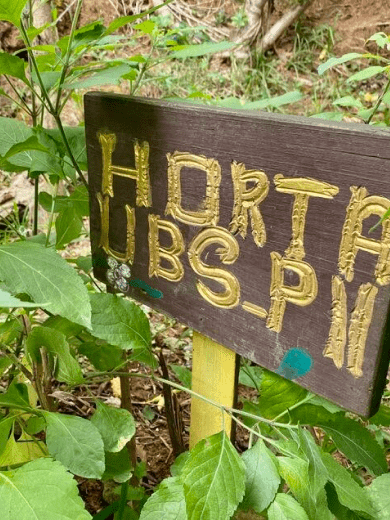 HORTA
UBS_P11